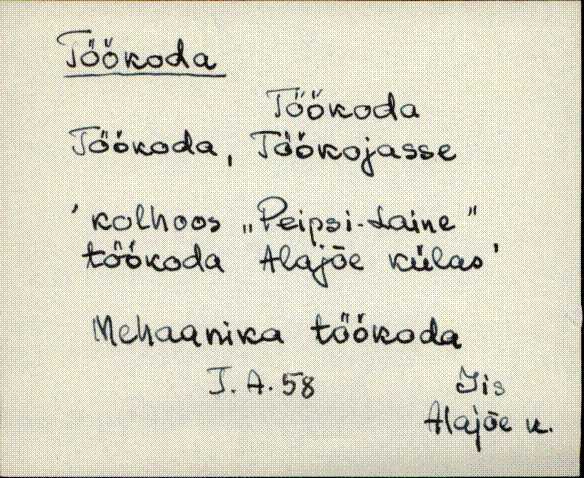 Töökoda
Töökoda
Töökoda, Töökojasse
'kolhoos „Peipsi-Laine"
töökoda Alajõe külas'
Mehaanika töökoda
J. A. 58
Iis
Alajõe k.